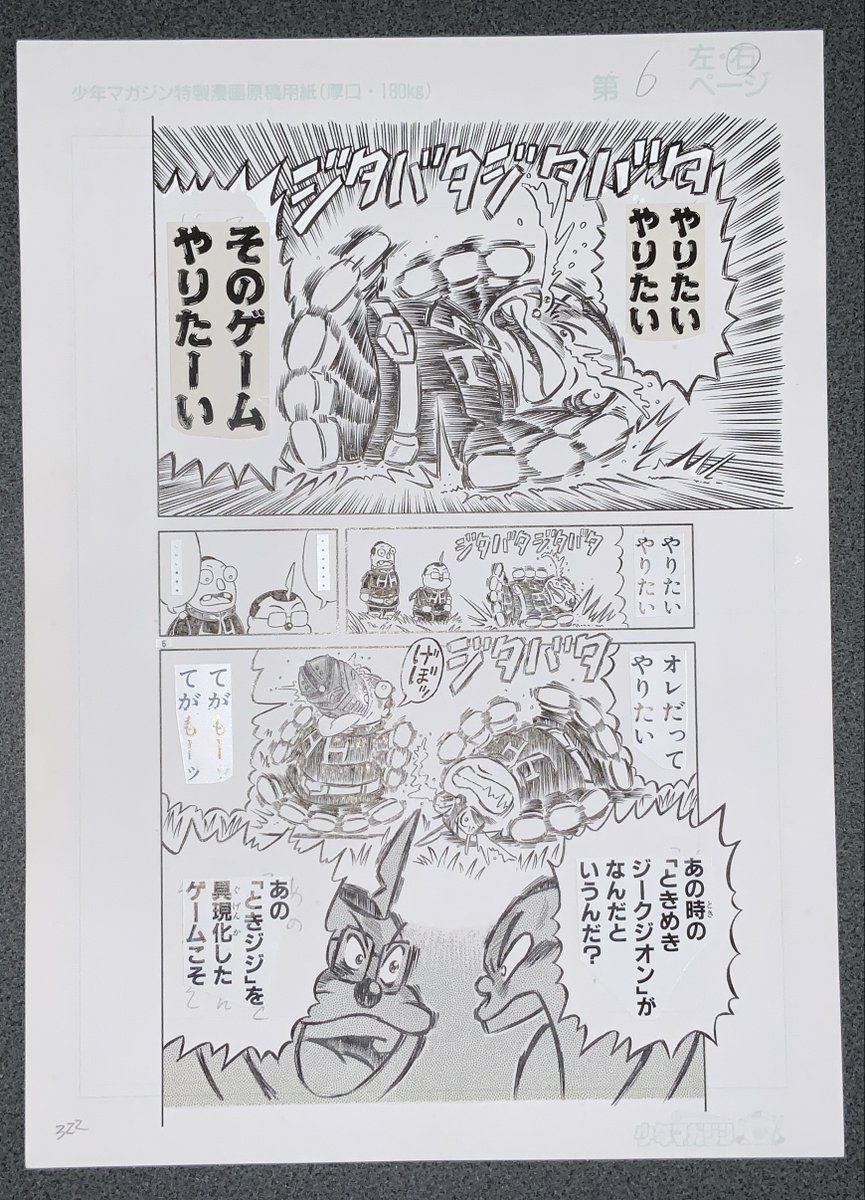 少年マガジン特製漫画原稿用紙(厚口・180kg)
第6
左・右
ページ
ジタバタジタバタ
やりたい
やりたい
そのゲーム
やりたーい
やりたい
やりたい
ジタバタジタバタ
………
………
6
オレだって
やりたい
ジタバタ
げぼッ
てがもーッ
てがもーッ
あの時の
とき
「ときめき
ジークジオン」が
なんだと
いうんだ?
あの
「ときジジ」を
具現化した
ぐげんか
ゲームこそ
322
少年マガジン